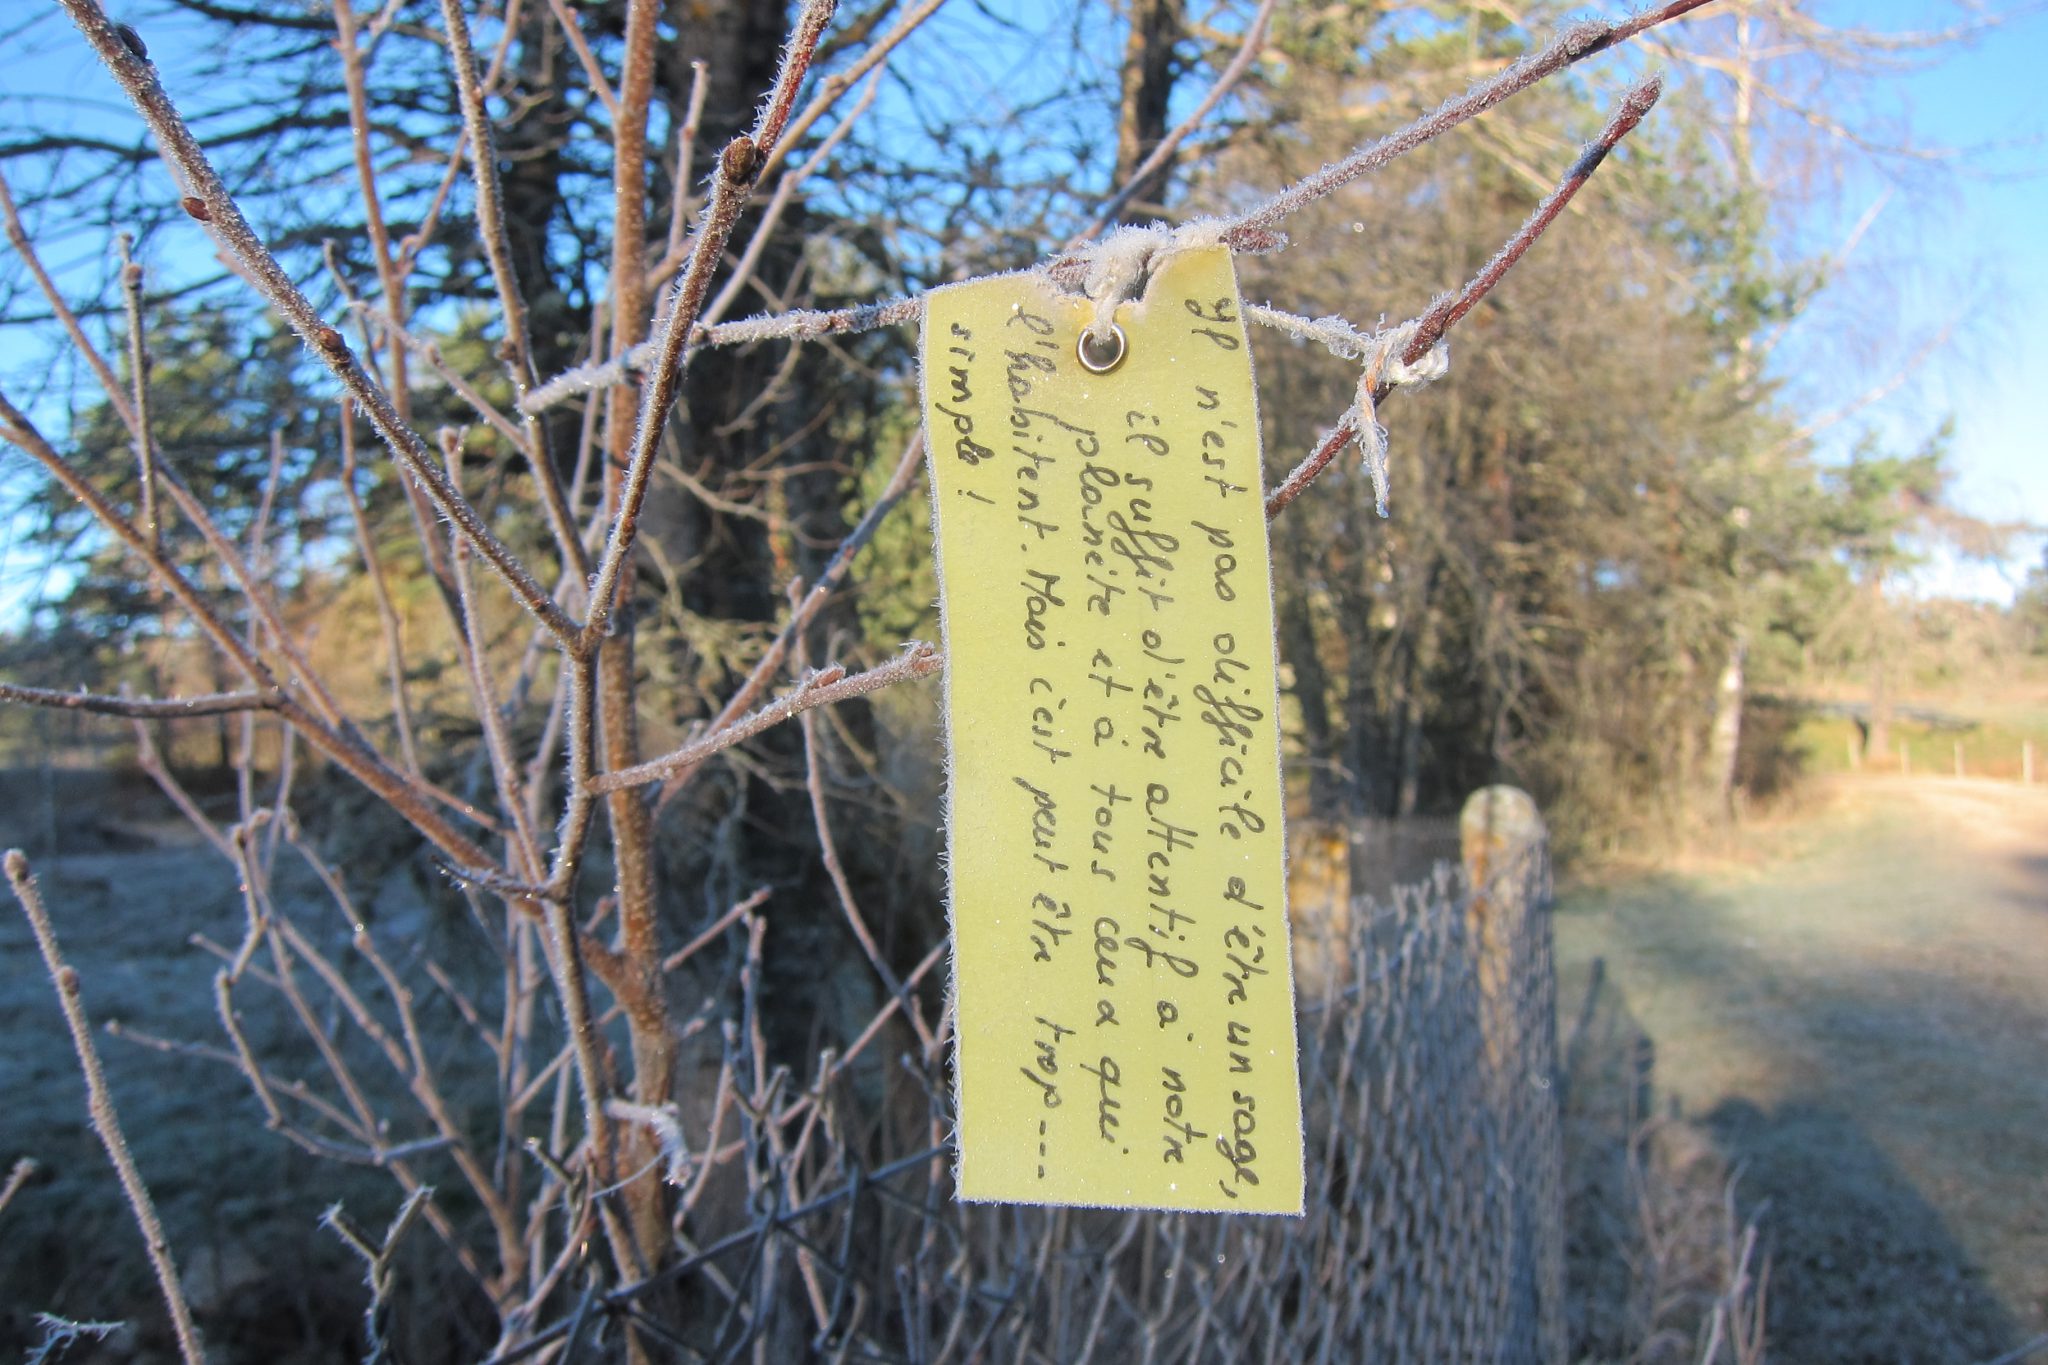 Il n'est pas difficile d'être un sage,
il suffit d'être attentif à notre
planète et à tous ceux qui
l'habitent. Mais c'est peut être trop ----
simple !